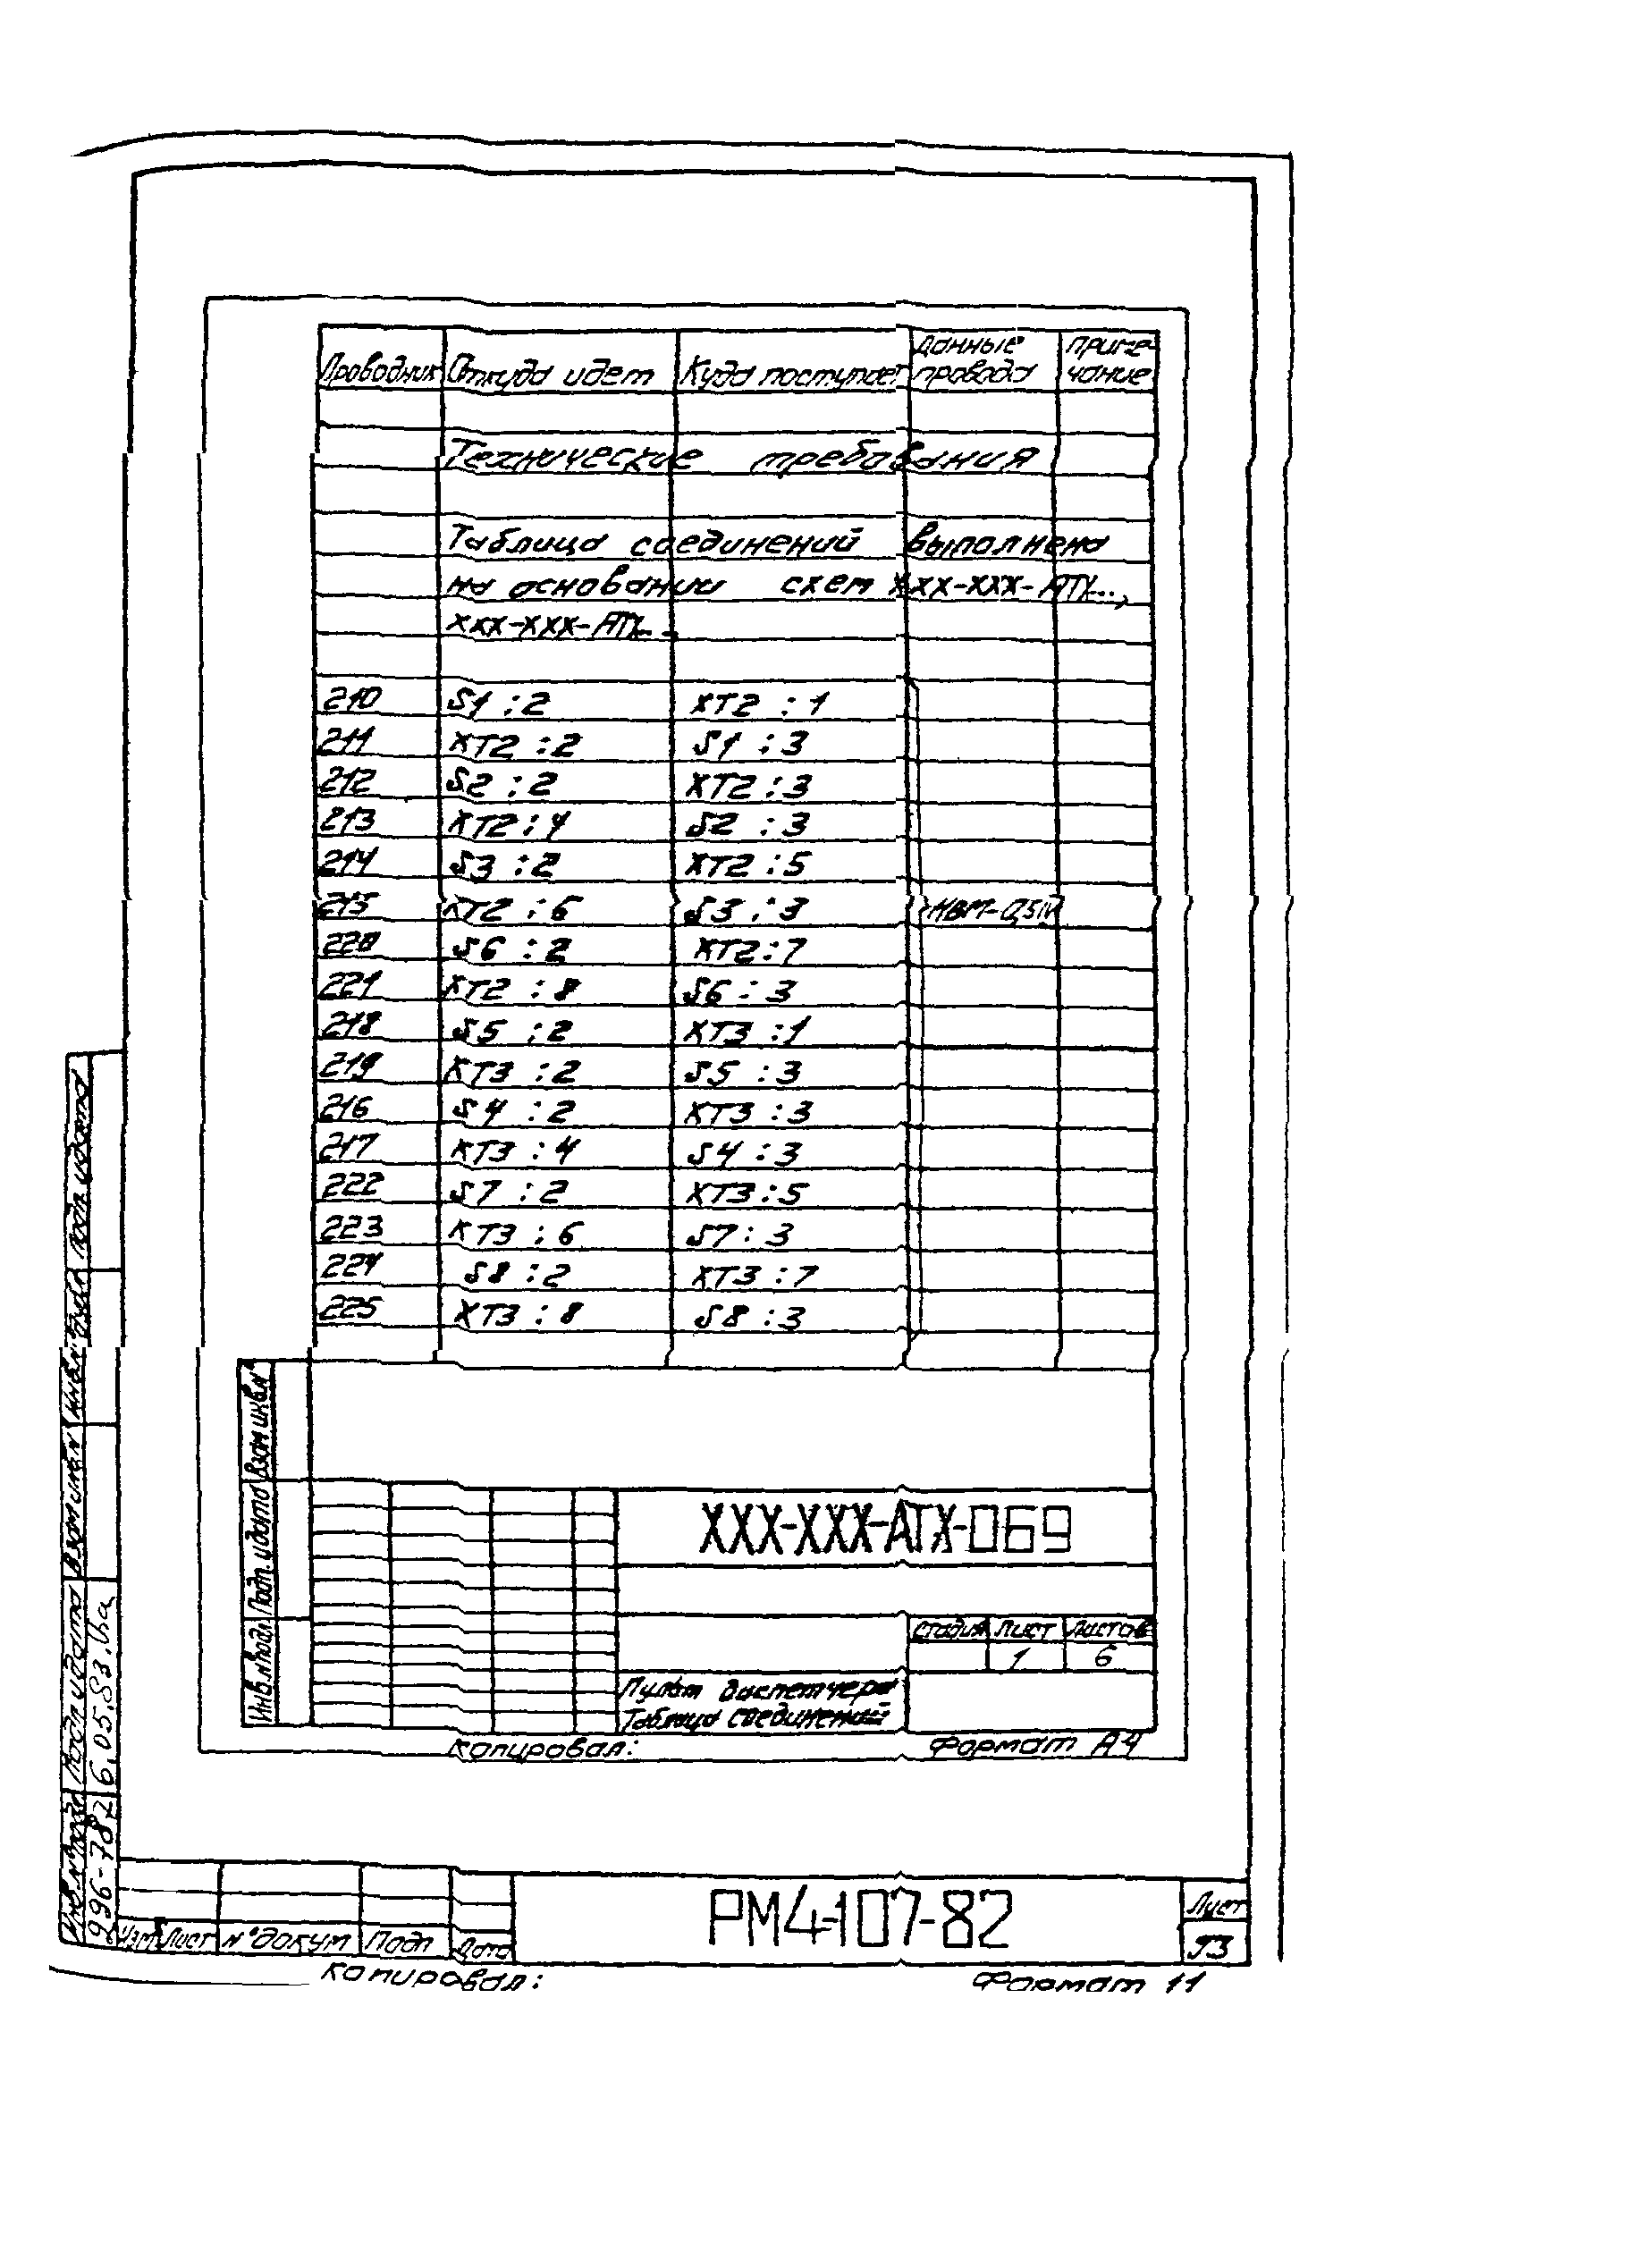 Проводник Откуда идет Куда поступает Данные провода Примечание
Технические требования
Таблица соединений выполнена
на основании схем ХХХ-ХХХ-АТХ...,
ХХХ-ХХХ-АТХ...
210 S1 :2 XT2 :1
211 XT2 :2 S1 :3
212 S2 :2 XT2 :3
213 XT2 :4 S2 :3
214 S3 :2 XT2 :5
215 XT2 :6 S3 :3
220 S6 :2 XT2 :7
221 XT2 :8 S6 :3
218 S5 :2 XT3 :1
219 XT3 :2 S5 :3
216 S4 :2 XT3 :3
217 XT3 :4 S4 :3
222 S7 :2 XT3 :5
223 XT3 :6 S7 :3
224 S8 :2 XT3 :7
225 XT3 :8 S8 :3
Взам инв №
Подп. и дата
Инв. № подл
ХХХ-ХХХ-АТХ-069
Стадия Лист Листов
1 6
Пульт диспетчера
Таблица соединений
Копировал: Формат А4
Подп и дата
Взам инв №
Подп и дата 6.05.83.
Инв № подл
Изм Лист № докум Подп Дата
РМ4-107-82
Лист
93
Копировал: Формат 11